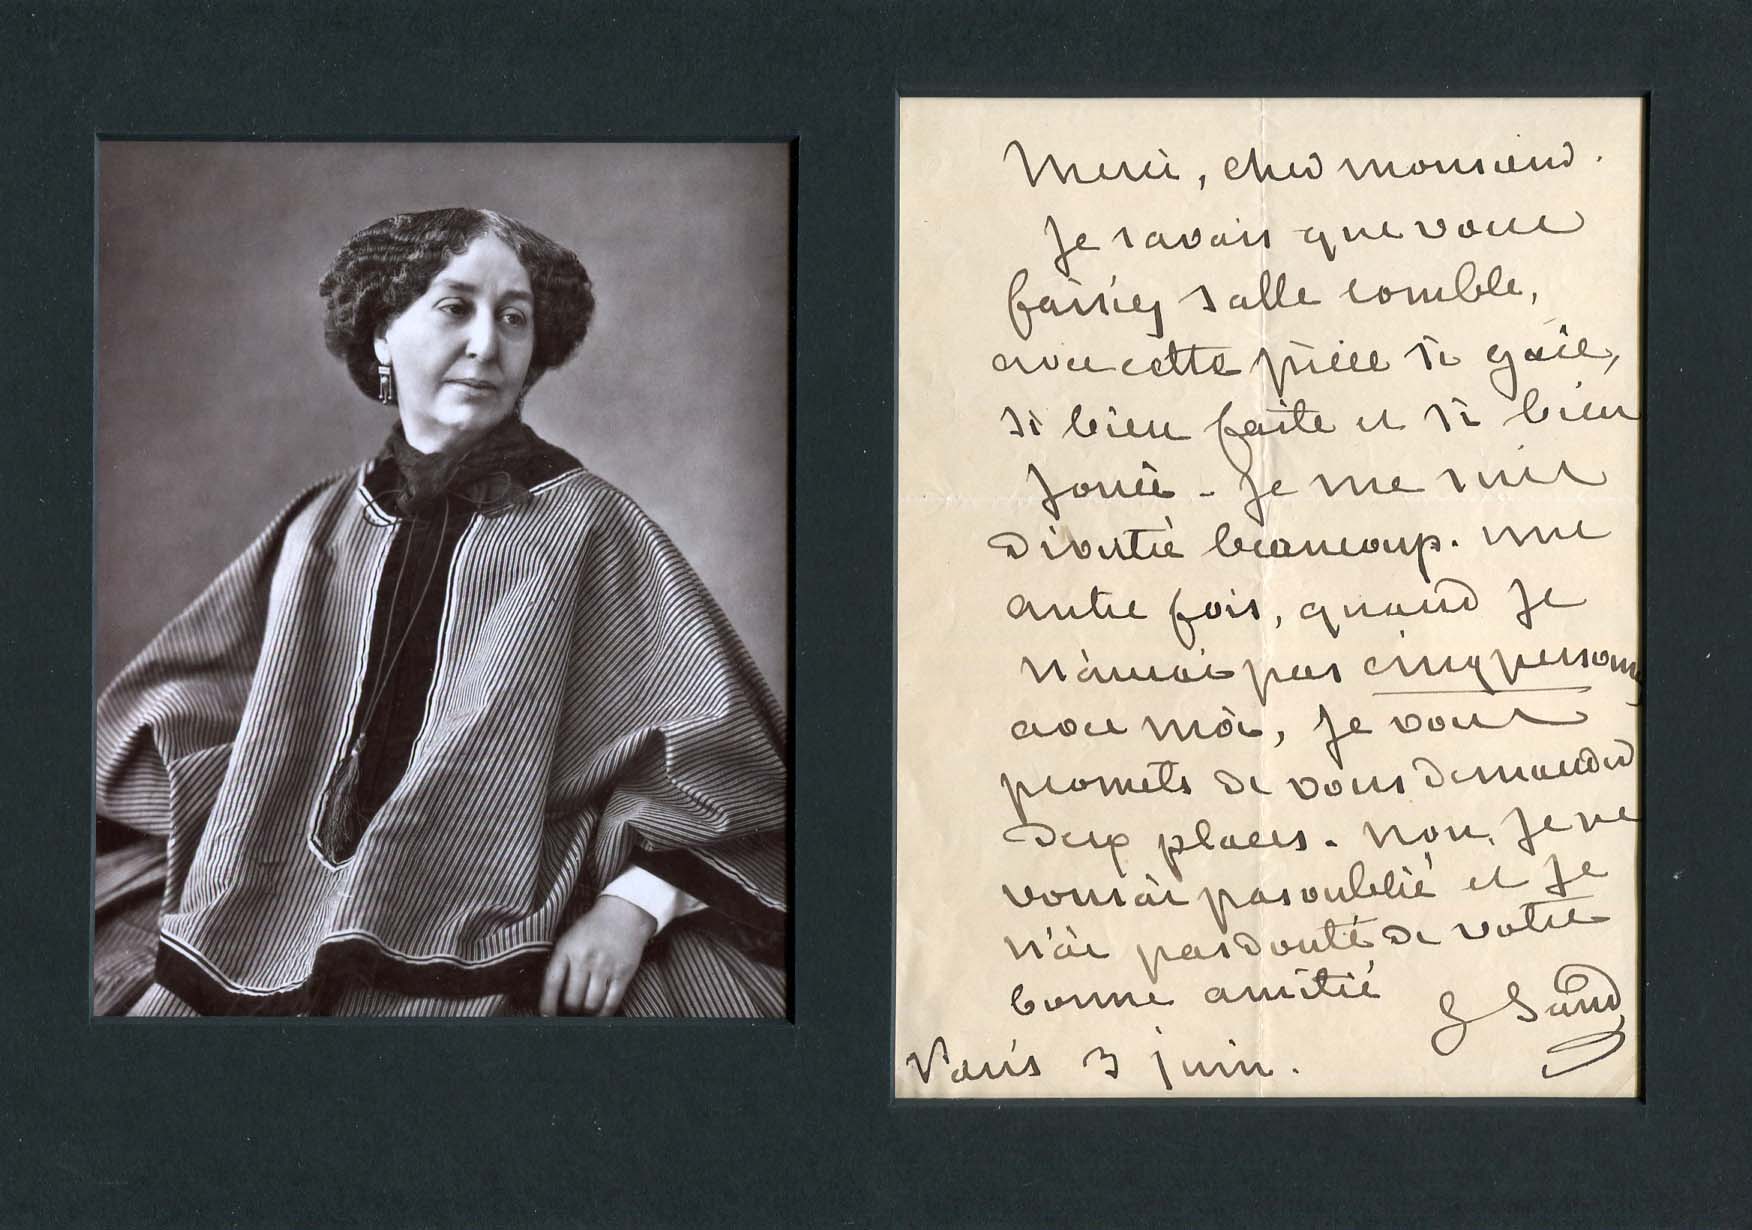 Merci, cher monsieur.
Je savais que vous
faisiez salle comble,
avec cette pièce si gaie,
si bien faite et si bien
jouée - Je me suis
divertie beaucoup. une
autre fois, quand je
n'aurai pas cinq personnes
avec moi, je vous
promets de vous demander
deux places. Non, je ne
vous ai pas oublié et je
n'ai pas douté de votre
bonne amitié
G Sand
Paris 3 juin.